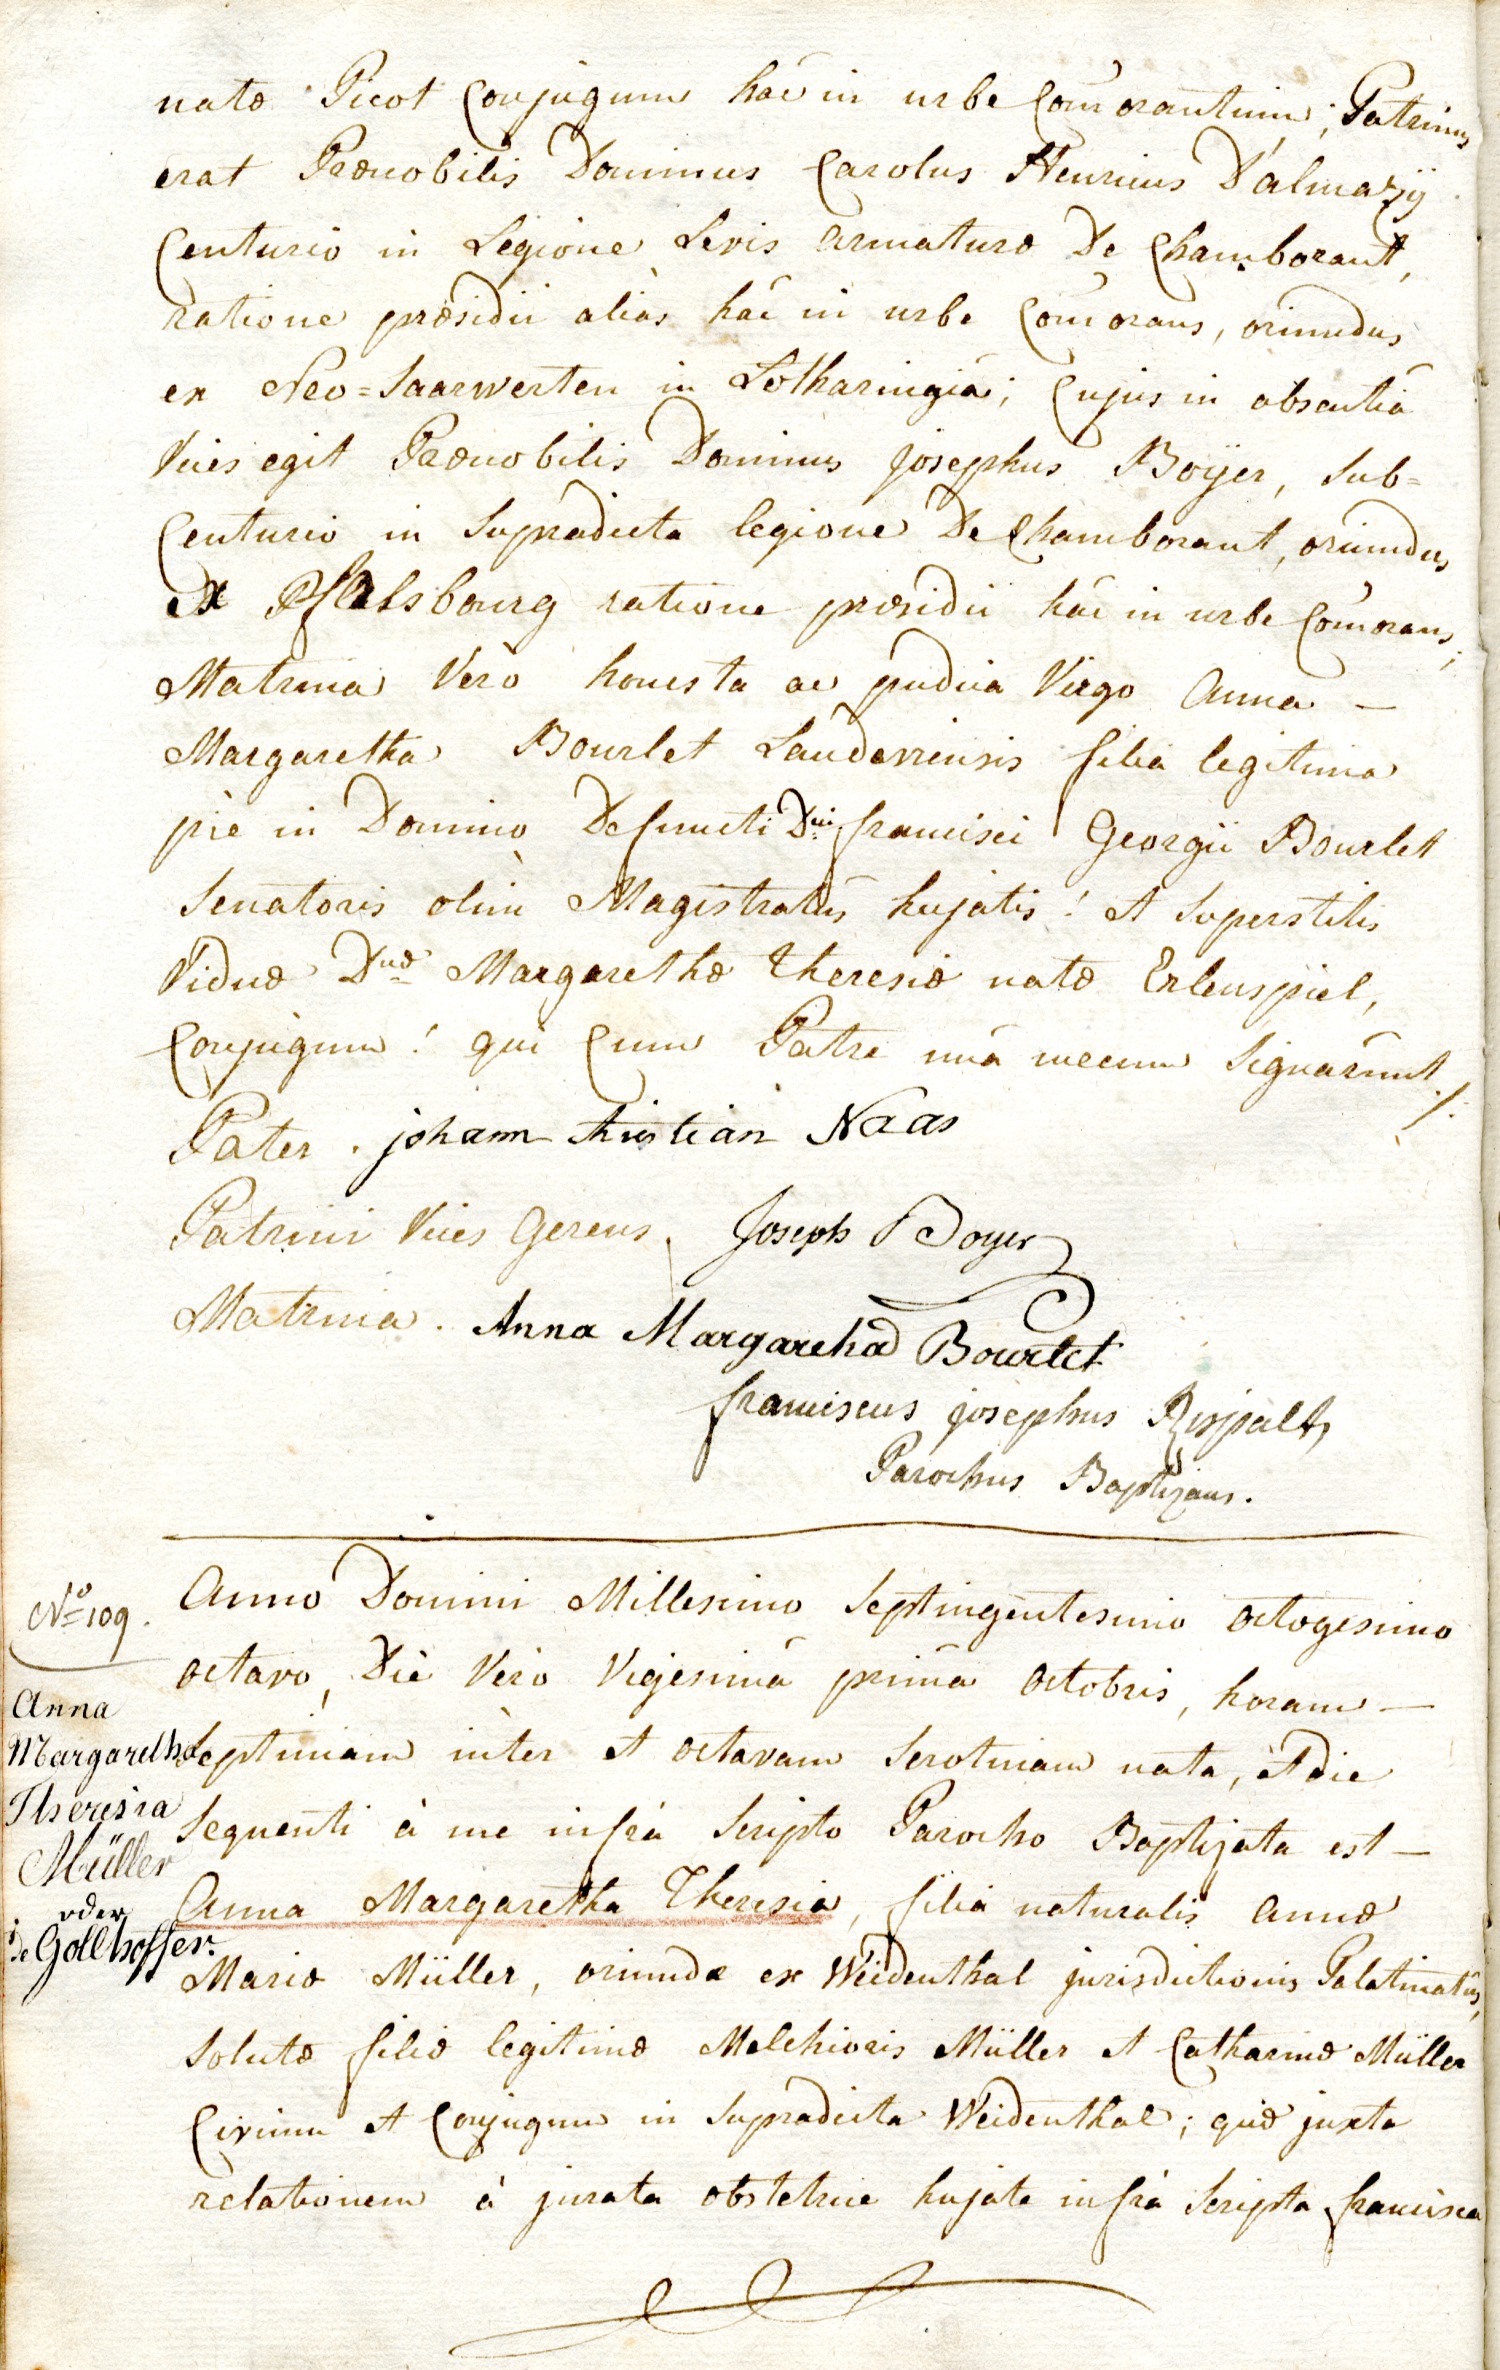 natæ Picot Conjugum hâc in urbe Com̄orantium; Patrinus
erat Prænobilis Dominus Carolus Henricus D'almazÿ
Centurio in Legione Levis armaturæ De Chamborant,
ratione præsidii aliàs hâc in urbe Com̄orans, oriundus
ex Neo=Saarwerten in Lotharingiâ; Cujus in absentiâ
Vices egit Prænobilis Dominus Josephus Boÿer, Sub=
Centurio in Supradicta legione De Chamborant, oriundus
ex Pfalsbourg ratione præsidii hâc in urbe Com̄orans;
Matrina Verò honesta ac pudica Virgo Anna —
Margaretha Bourlet Landaviensis filia legitima
piè in Domino Defuncti Dni francisci Georgii Bourlet
Senatoris olim Magistratûs hujatis! et Superstitis
Viduæ Dnæ Margarethæ Theresiæ natæ Erlenspiel,
Conjugum! qui Cum Patre unâ mecum Signarunt ./.
Pater. johann Christian Naas
Patrini Vices Gerens. Joseph Boyer
Matrina. Anna Margaretha Bourlet
franciscus josephus
Parochus Baptizans.
No 109. Anno Domini Millesimo Septingentesimo octogesimo
octavo, Die Verò Vigesimâ primâ octobris, horam —
Septimam inter et octavam Serotinam nata, et die
Sequenti à me infrà Scripto Parocho Baptizata est —
Anna Margaretha Theresia, filia naturalis Annæ
Mariæ Müller, oriundæ ex Weidenthal jurisdictionis Palatinatûs,
Solutæ filiæ legitimæ Melchioris Müller et Catharinæ Müller
Civium et Conjugum in Supradicta Weidenthal; quæ juxta
relationem à jurata obstetrice hujate infrà Scripta francisca
Anna
Margaretha
Theresia
Müller
oder
Gollhoffer.